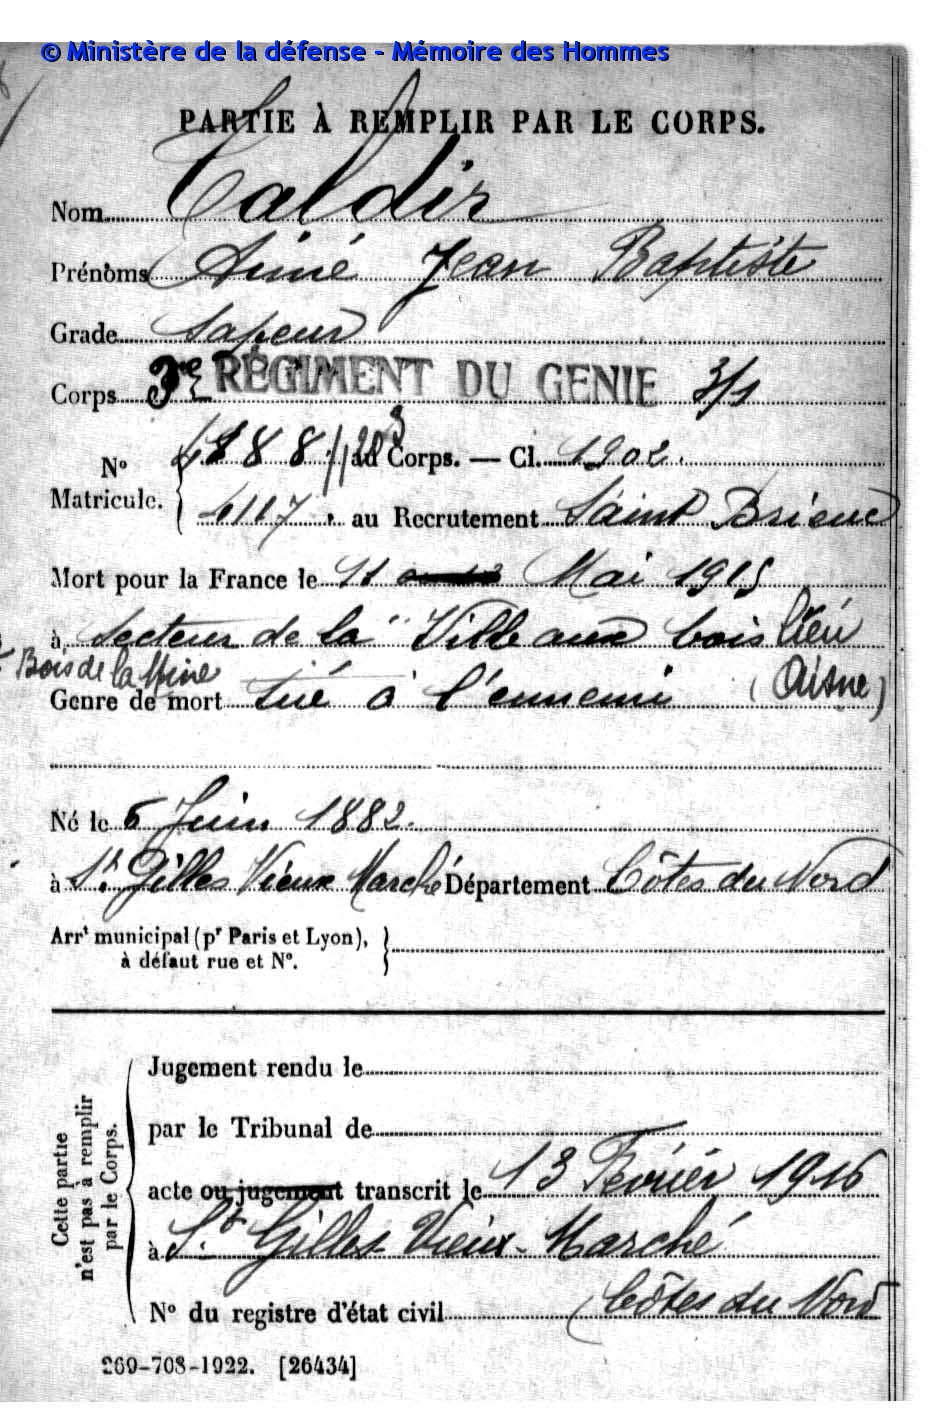 © Ministère de la défense - Mémoire des Hommes
PARTIE À REMPLIR PAR LE CORPS.
Nom Caldir
Prénoms Aimé Jean Baptiste
Grade Sapeur
Corps 3e RÉGIMENT DU GENIE 3/1
N° Matricule. 4888 au Corps. — Cl. 1902.
4117. au Recrutement Saint Brieuc
Mort pour la France le 11 Mai 1915
à Secteur de la Ville aux bois lieu
Bois de la Mine
Genre de mort tué à l'ennemi (Aisne)
Né le 5 Juin 1882.
à St Gilles Vieux Marché Département Côtes du Nord
Arrt municipal (pr Paris et Lyon),
à défaut rue et N°.
Cette partie
n'est pas à remplir
par le Corps.
Jugement rendu le
par le Tribunal de
acte ou jugement transcrit le 13 Février 1916
à St Gilles Vieux-Marché
N° du registre d'état civil (Côtes du Nord
269-708-1922. [26434]